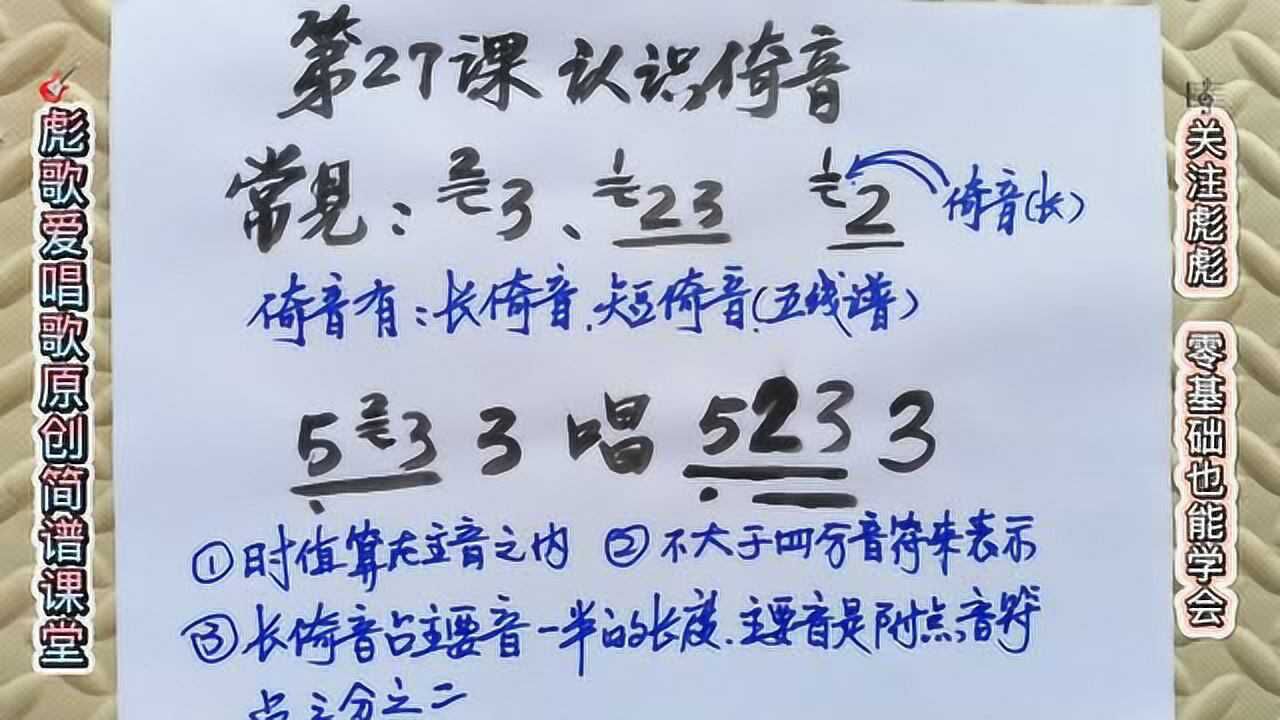 第27课 认识倚音
常见：2 3、1 23 1 2 倚音(长)
倚音有：长倚音.短倚音(五线谱)
5 2 3 3 唱 523 3
①时值算在主音之内 ②不大于四分音符来表示
③长倚音占主要音一半的长度.主要音是附点音符
占三分之二
彪歌爱唱歌原创简谱课堂
关注彪彪 零基础也能学会